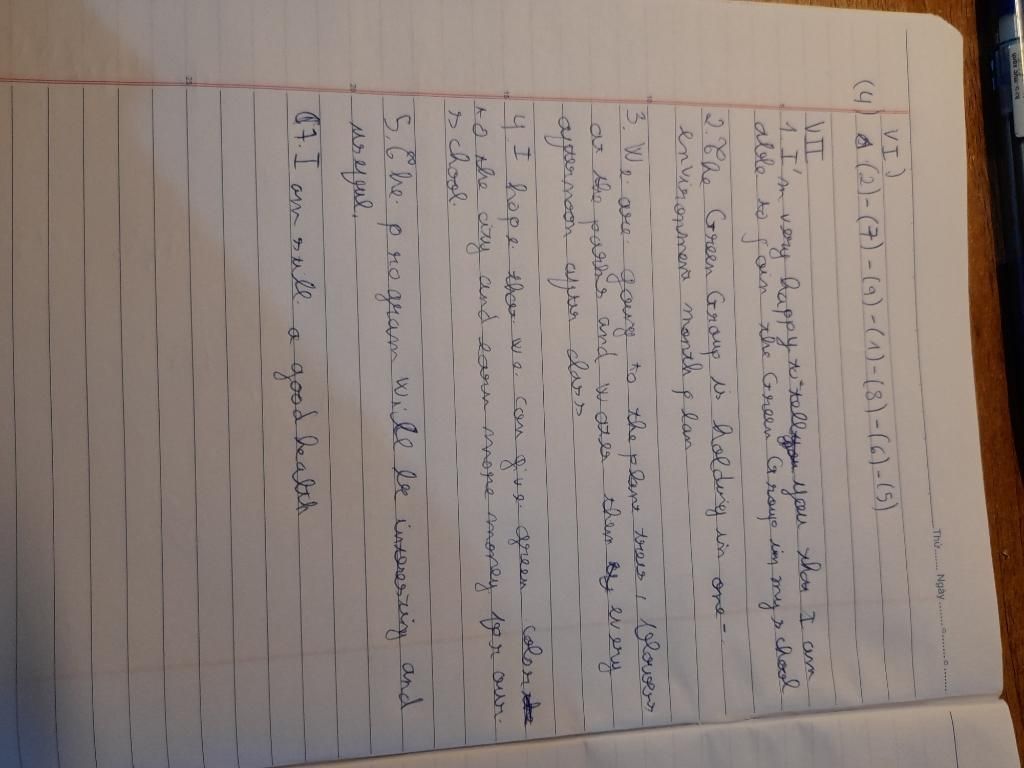 Thứ....... Ngày...........
VI.)
(4) (2) - (7) - (9) - (1) - (8) - (6) - (5)
VII
1. I'm very happy to tell you that I am
able to join the Green Group in my school
2. The Green Group is holding in one -
environment month plan
3. We are going to the plant trees, flowers
at the parks and water them every
afternoon after class
4 I hope that we can give green color
to the city and earn more money for our
school.
5. The program will be interesting and
useful.
7. I am still a good health